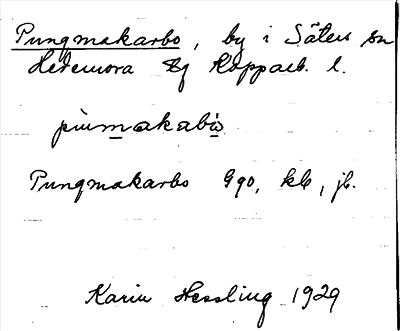 Pungmakarbo, by i Säters sn
Hedemora tg Kopparb. l.
pu̇makabȯ
Pungmakarbo Ggo, klb, jb.
Karin Hessling 1929